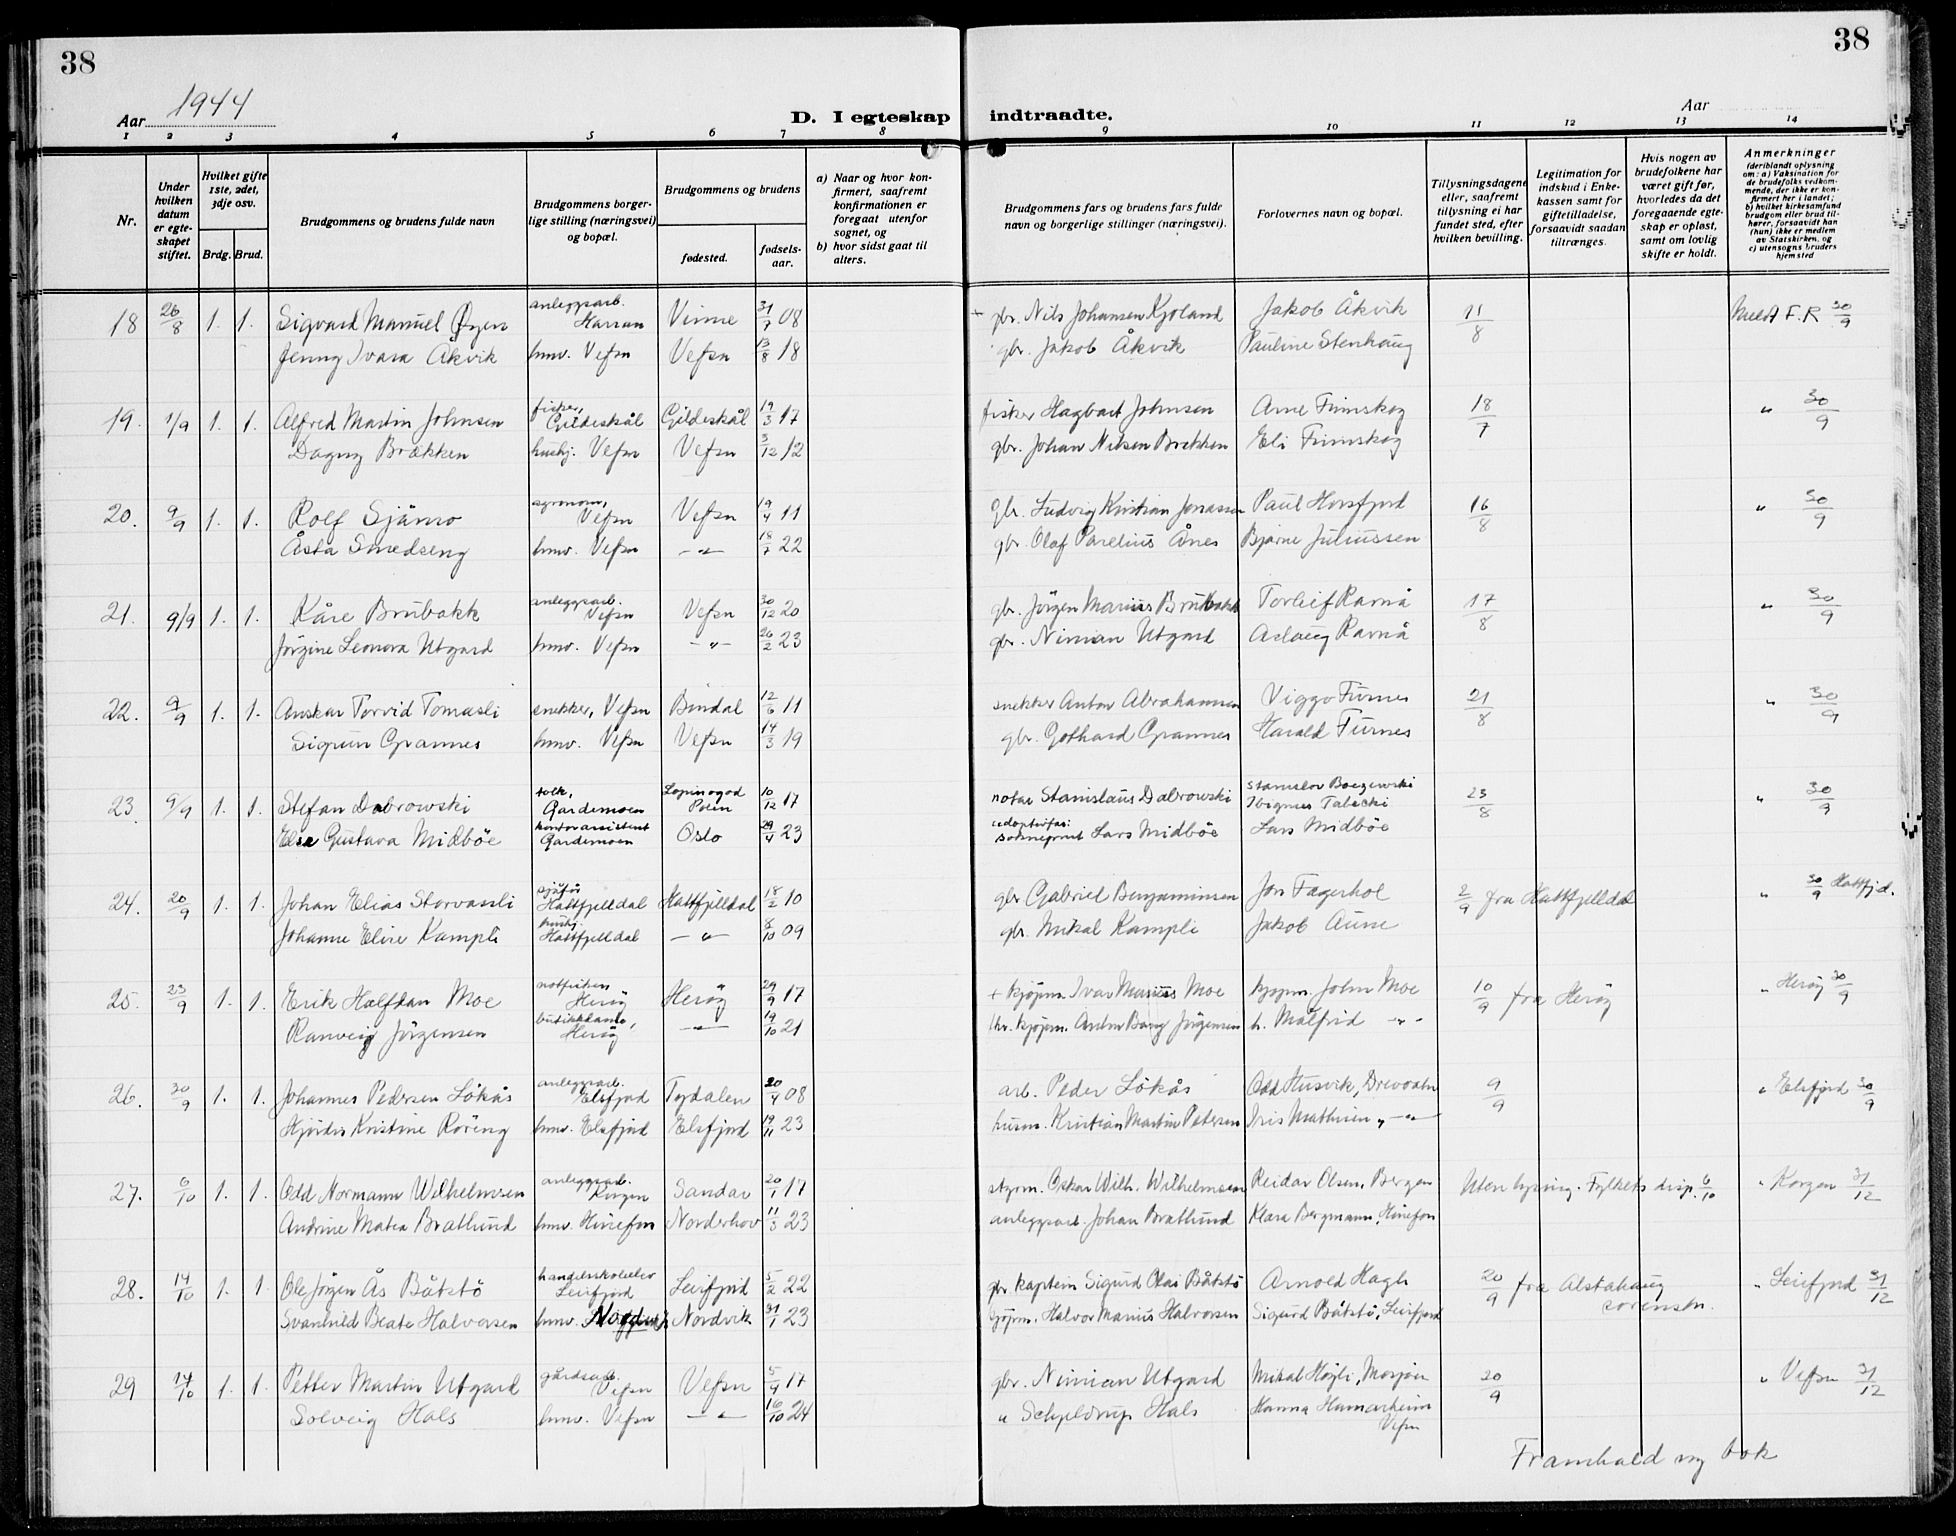 38
38
Aar 1944
D. I egteskap indtraadte.
Aar
1 2 3 4 5 6 7 8 9 10 11 12 13 14
Nr.
Under hvilken datum er egteskapet stiftet.
Hvilket gifte 1ste, 2det, 3dje osv.
Brdg. Brud.
Brudgommens og brudens fulde navn
Brudgommens borgerlige stilling (næringsvei) og bopæl.
Brudgommens og brudens
fødested.
fødselsaar.
a) Naar og hvor konfirmert, saafremt konfirmationen er foregaat utenfor sognet, og
b) hvor sidst gaat til alters.
Brudgommens fars og brudens fars fulde navn og borgerlige stillinger (næringsvei).
Forlovernes navn og bopæl.
Tillysningsdagene eller, saafremt tillysning ei har fundet sted, efter hvilken bevilling.
Legitimation for indskud i Enkekassen samt for giftetilladelse, forsaavidt saadan tiltrænges.
Hvis nogen av brudefolkene har været gift før, hvorledes da det foregaaende egteskap er opløst, samt om lovlig skifte er holdt.
Anmerkninger (deriblandt oplysning om: a) Vaksination for de brudefolks vedkommende, der ikke er konfirmert her i landet; b) hvilket kirkesamfund brudgom eller brud tilhører, forsaavidt han (hun) ikke er medlem av Statskirken, og c) utensogns bruders hjemsted
18 26/8 1. 1. Sigvard Manuel Øyen anleggsarb. Harran Vinne 31/7 08 + gbr. Nils Johansen Kjoland Jakob Åkvik 11/8 Meldt F.R 30/9
Jenny Ivara Åkvik hmv. Vefsn Vefsn 13/8 18 gbr. Jakob Åkvik Pauline Stenhaug
19. 1/9 1. 1. Alfred Martin Johnsen fisker, Gildeskål Gildeskål 19/3 17 fisker Hagbart Johnsen Arne Finnskog 18/7 " 30/9
Dagny Brækken hushj. Vefsn Vefsn 3/12 12 gbr. Johan Nilsen Brekken Eli Finnskog
20. 9/9 1. 1. Rolf Sjåmo agronom, Vefsn Vefsn 19/4 11 gbr. Ludvig Kristian Jonassen Paul Horsfjord 16/8 " 30/9
Åsta Smedseng hmv. Vefsn —"— 18/7 22 gbr. Olaf Parelius Ånes Bjarne Juliussen
21. 9/9 1. 1. Kåre Brubakk anleggsarb. Vefsn Vefsn 30/12 20 gbr. Jörgen Marius Brubakk Torleif Ravnå 17/8 " 30/9
Jörgine Leonora Utgard hmv. Vefsn —"— 26/2 23 gbr. Nimian Utgard Aslaug Ravnå
22. 9/9 1. 1. Anskar Torvid Tomasli snekker, Vefsn Bindal 12/6 11 snekker Anton Abrahamsen Viggo Furnes 21/8 " 30/9
Sigrun Grannes hmv. Vefsn Vefsn 14/3 19 gbr. Gothard Grannes Harald Furnes
23. 9/9 1. 1. Stefan Dabrowski tolk, Gardemoen Polen 10/12 17 notar Stanislaus Dabrowski 23/8 " 30/9
Else Gustava Midböe kontorassistent Gardemoen Oslo 29/4 23 adoptivfar: sokneprest Lars Midböe Lars Midböe
24. 20/9 1. 1. Johan Elias Storvassli sjåför Hattfjelldal Hattfjelldal 18/2 10 gbr Gabriel Benjaminsen Jon Fagerhol 2/9 fra Hattfjelldal " 30/9 Hattfjd.
Johanne Elise Kampli hushj. Hattfjelldal —"— 8/10 09 gbr. Mikal Kampli Jakob Aune
25. 23/9 1. 1. Erik Halfdan Moe Heröy Heröy 29/9 17 + kjöpm. Ivar Marius Moe kjöpm. John Moe 10/9 fra Heröy " Heröy 30/9
Ranveig Jörgensen butikkdame, Heröy —"— 19/10 21 thv. kjöpm. Anton Bang Jörgensen h. Målfrid —"—
26. 30/9 1. 1. Johannes Pedersen Lökås anleggsarb. Elsfjord Tydalen 20/4 08 arb. Peder Lökås Odd Husvik, Drevvatn 9/9 " Elsfjord 30/9
Hjördis Kristine Röreng hmv. Elsfjord Elsfjord 19/11 23 husm. Kristian Martin Petersen Iris Mathisen, —"—
27. 6/10 1. 1. Odd Normann Wilhelmsen anleggsarb. Korgen Sandar 20/1 17 styrm. Oskar Wilh. Wilhelmsen Reidar Olsen, Bergen Uten lysning. Fylkets disp. 6/10 " Korgen 31/12
Andrine Matea Bratlund hmv. Hönefon Norderhov 11/3 23 anleggsarb. Johan Bratlund Klara Bergmann, Hönefon
28. 14/10 1. 1. Ole Jörgen Ås Båtstö handelsskoleelev Leirfjord Leirfjord 5/2 22 gbr kaptein Sigurd Olai Båtstö Arnold Hagh 20/9 fra Alstahaug sorenskr. " Leirfjord 31/12
Svanhild Beate Halvorsen hmv. Nordvik 31/1 23 kjöpm. Halvor Marius Halvorsen Sigurd Båtstö, Leirfjord
29 14/10 1. 1. Petter Martin Utgard gårdsarb. Vefsn Vefsn 5/4 17 gbr. Nimian Utgard Mikal Högli, Mosjöen 20/9 " Vefsn 31/12
Solveig Hals hmv. Vefsn —"— 16/10 24 " Schjeldrup Hals Hanna Hamarheim Vefsn
Framhald ny bok